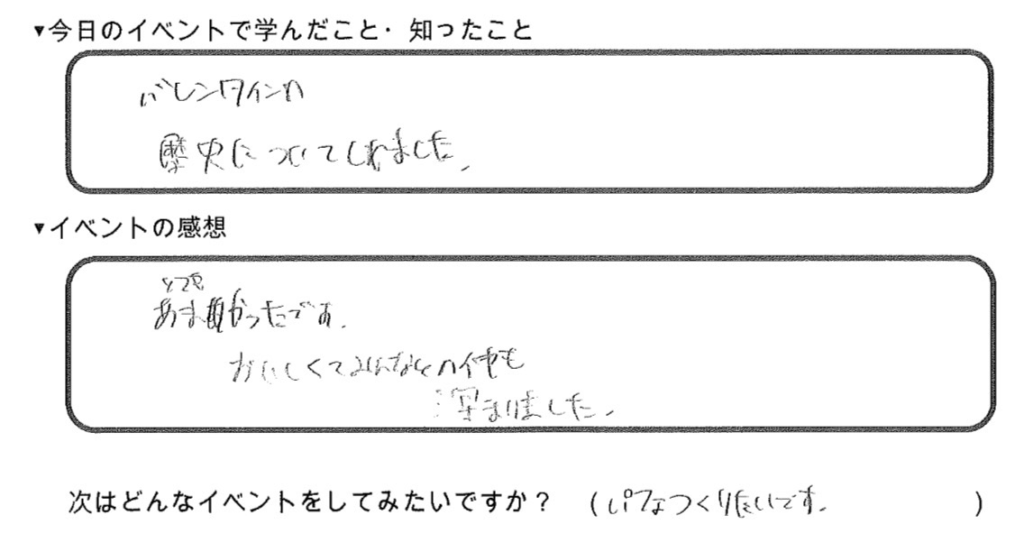 ▼今日のイベントで学んだこと・知ったこと
バレンタインの
歴史についてしれました。
▼イベントの感想
とても
あまかったです。
おいしくてみんなとの仲も
深まりました。
次はどんなイベントをしてみたいですか？ （ パフェつくりたいです。 ）